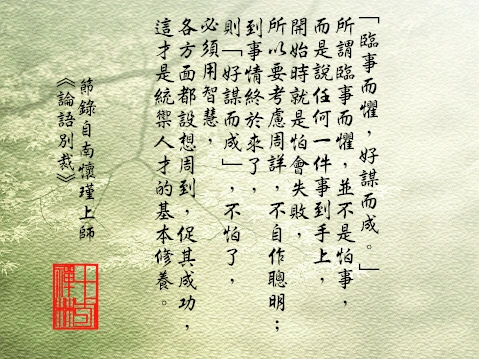 「臨事而懼，好謀而成。」
所謂臨事而懼，並不是怕事，
而是說任何一件事到手上，
開始時就是怕會失敗，
所以要考慮周詳，不自作聰明；
到事情終於來了，
則「好謀而成」，不怕了，
必須用智慧，
各方面都設想周到，促其成功，
這才是統禦人才的基本修養。
節錄自南懷瑾上師
《論語別裁》